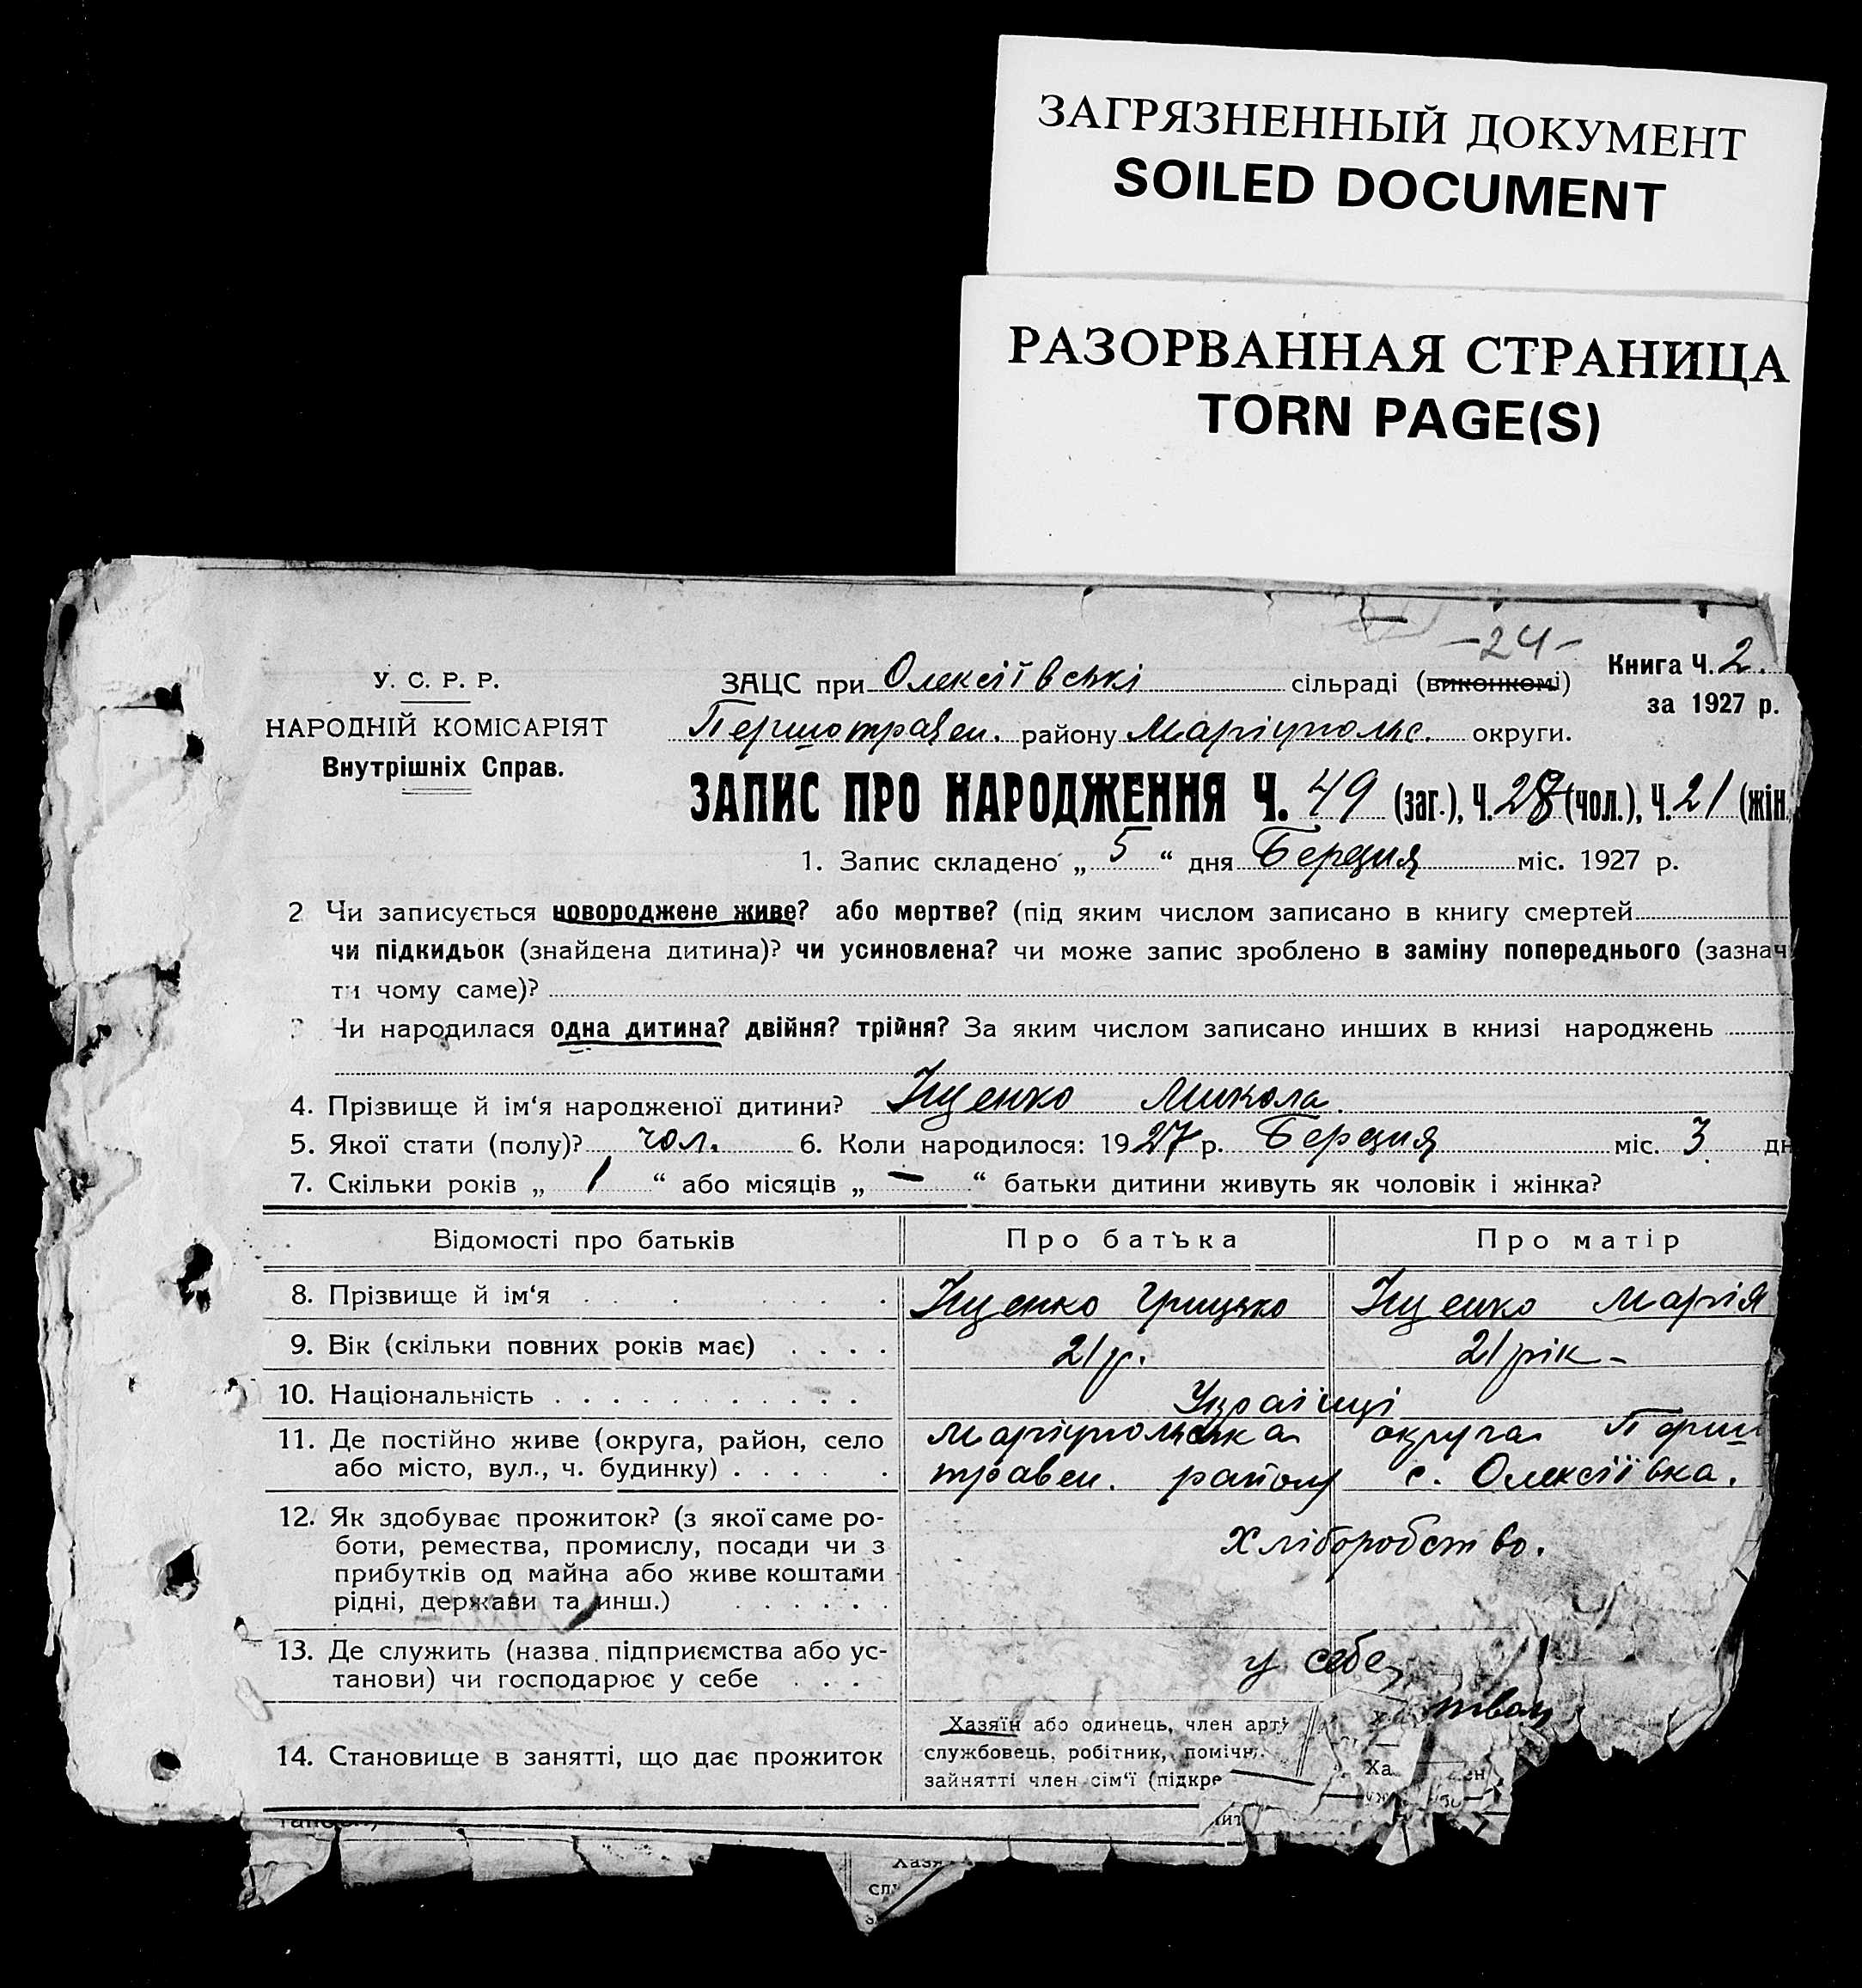 ЗАГРЯЗНЕННЫЙ ДОКУМЕНТ
SOILED DOCUMENT
РАЗОРВАННАЯ СТРАНИЦА
TORN PAGE(S)
-24-
Книга Ч. 2.
за 1927 р.
У. С. Р. Р.
НАРОДНІЙ КОМІСАРІЯТ
Внутрішніх Справ.
ЗАЦС при Олексіївські сільраді (виконкомі)
Першотравен. району Маріупольс. округи.
ЗАПИС ПРО НАРОДЖЕННЯ Ч. 49 (заг.), Ч. 28 (чол.), Ч. 21 (жін.
1. Запис складено „ 5 “ дня Березня міс. 1927 р.
2 Чи записується новороджене живе? або мертве? (під яким числом записано в книгу смертей
чи підкидьок (знайдена дитина)? чи усиновлена? чи може запис зроблено в заміну попереднього (зазначи
ти чому саме)?
Чи народилася одна дитина? двійня? трійня? За яким числом записано инших в книзі народжень
4. Прізвище й ім‘я народженої дитини? Іщенко Микола.
5. Якої стати (полу)? чол. 6. Коли народилося: 1927 р. Березня міс. 3 дн
7. Скільки років „ 1 “ або місяців „ — “ батьки дитини живуть як чоловік і жінка?
Відомості про батьків Про батька Про матір
8. Прізвище й ім‘я Іщенко Грицько Іщенко Марія
9. Вік (скільки повних років має) 21 р. 21 рік -
10. Національність Українці
11. Де постійно живе (округа, район, село Маріупольська округа Перш
або місто, вул., ч. будинку) травен. району с. Олексіївка.
12. Як здобуває прожиток? (з якої саме ро-
боти, ремества, промислу, посади чи з Хліборобство.
прибутків од майна або живе коштами
рідні, держави та инш.)
13. Де служить (назва підприємства або ус- у себе
танови) чи господарює у себе
Хазяїн або одинець, член арт
14. Становище в занятті, що дає прожиток службовець, робітник, помічн.
зайнятті член сім‘ї (підкре
Хазя